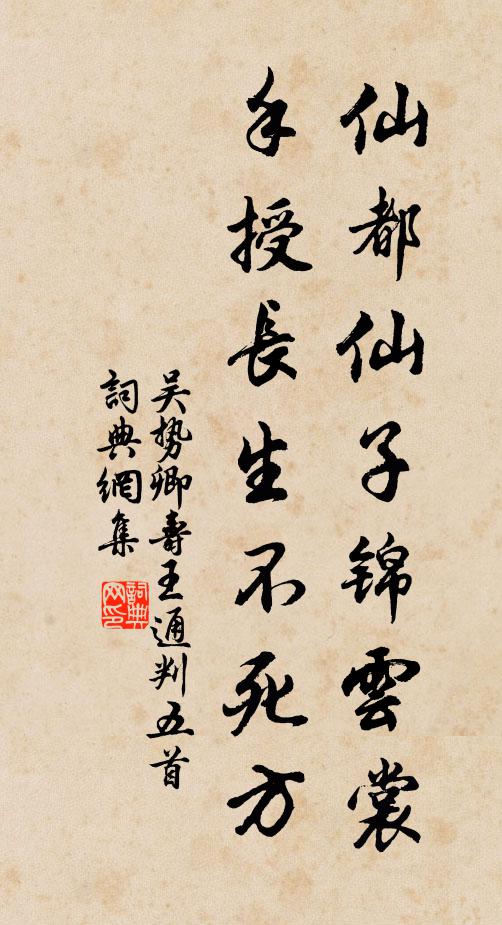 仙都仙子锦雲裳
手授長生不死方
吴势卿壽王通判五首
詞典網集
詞典网印